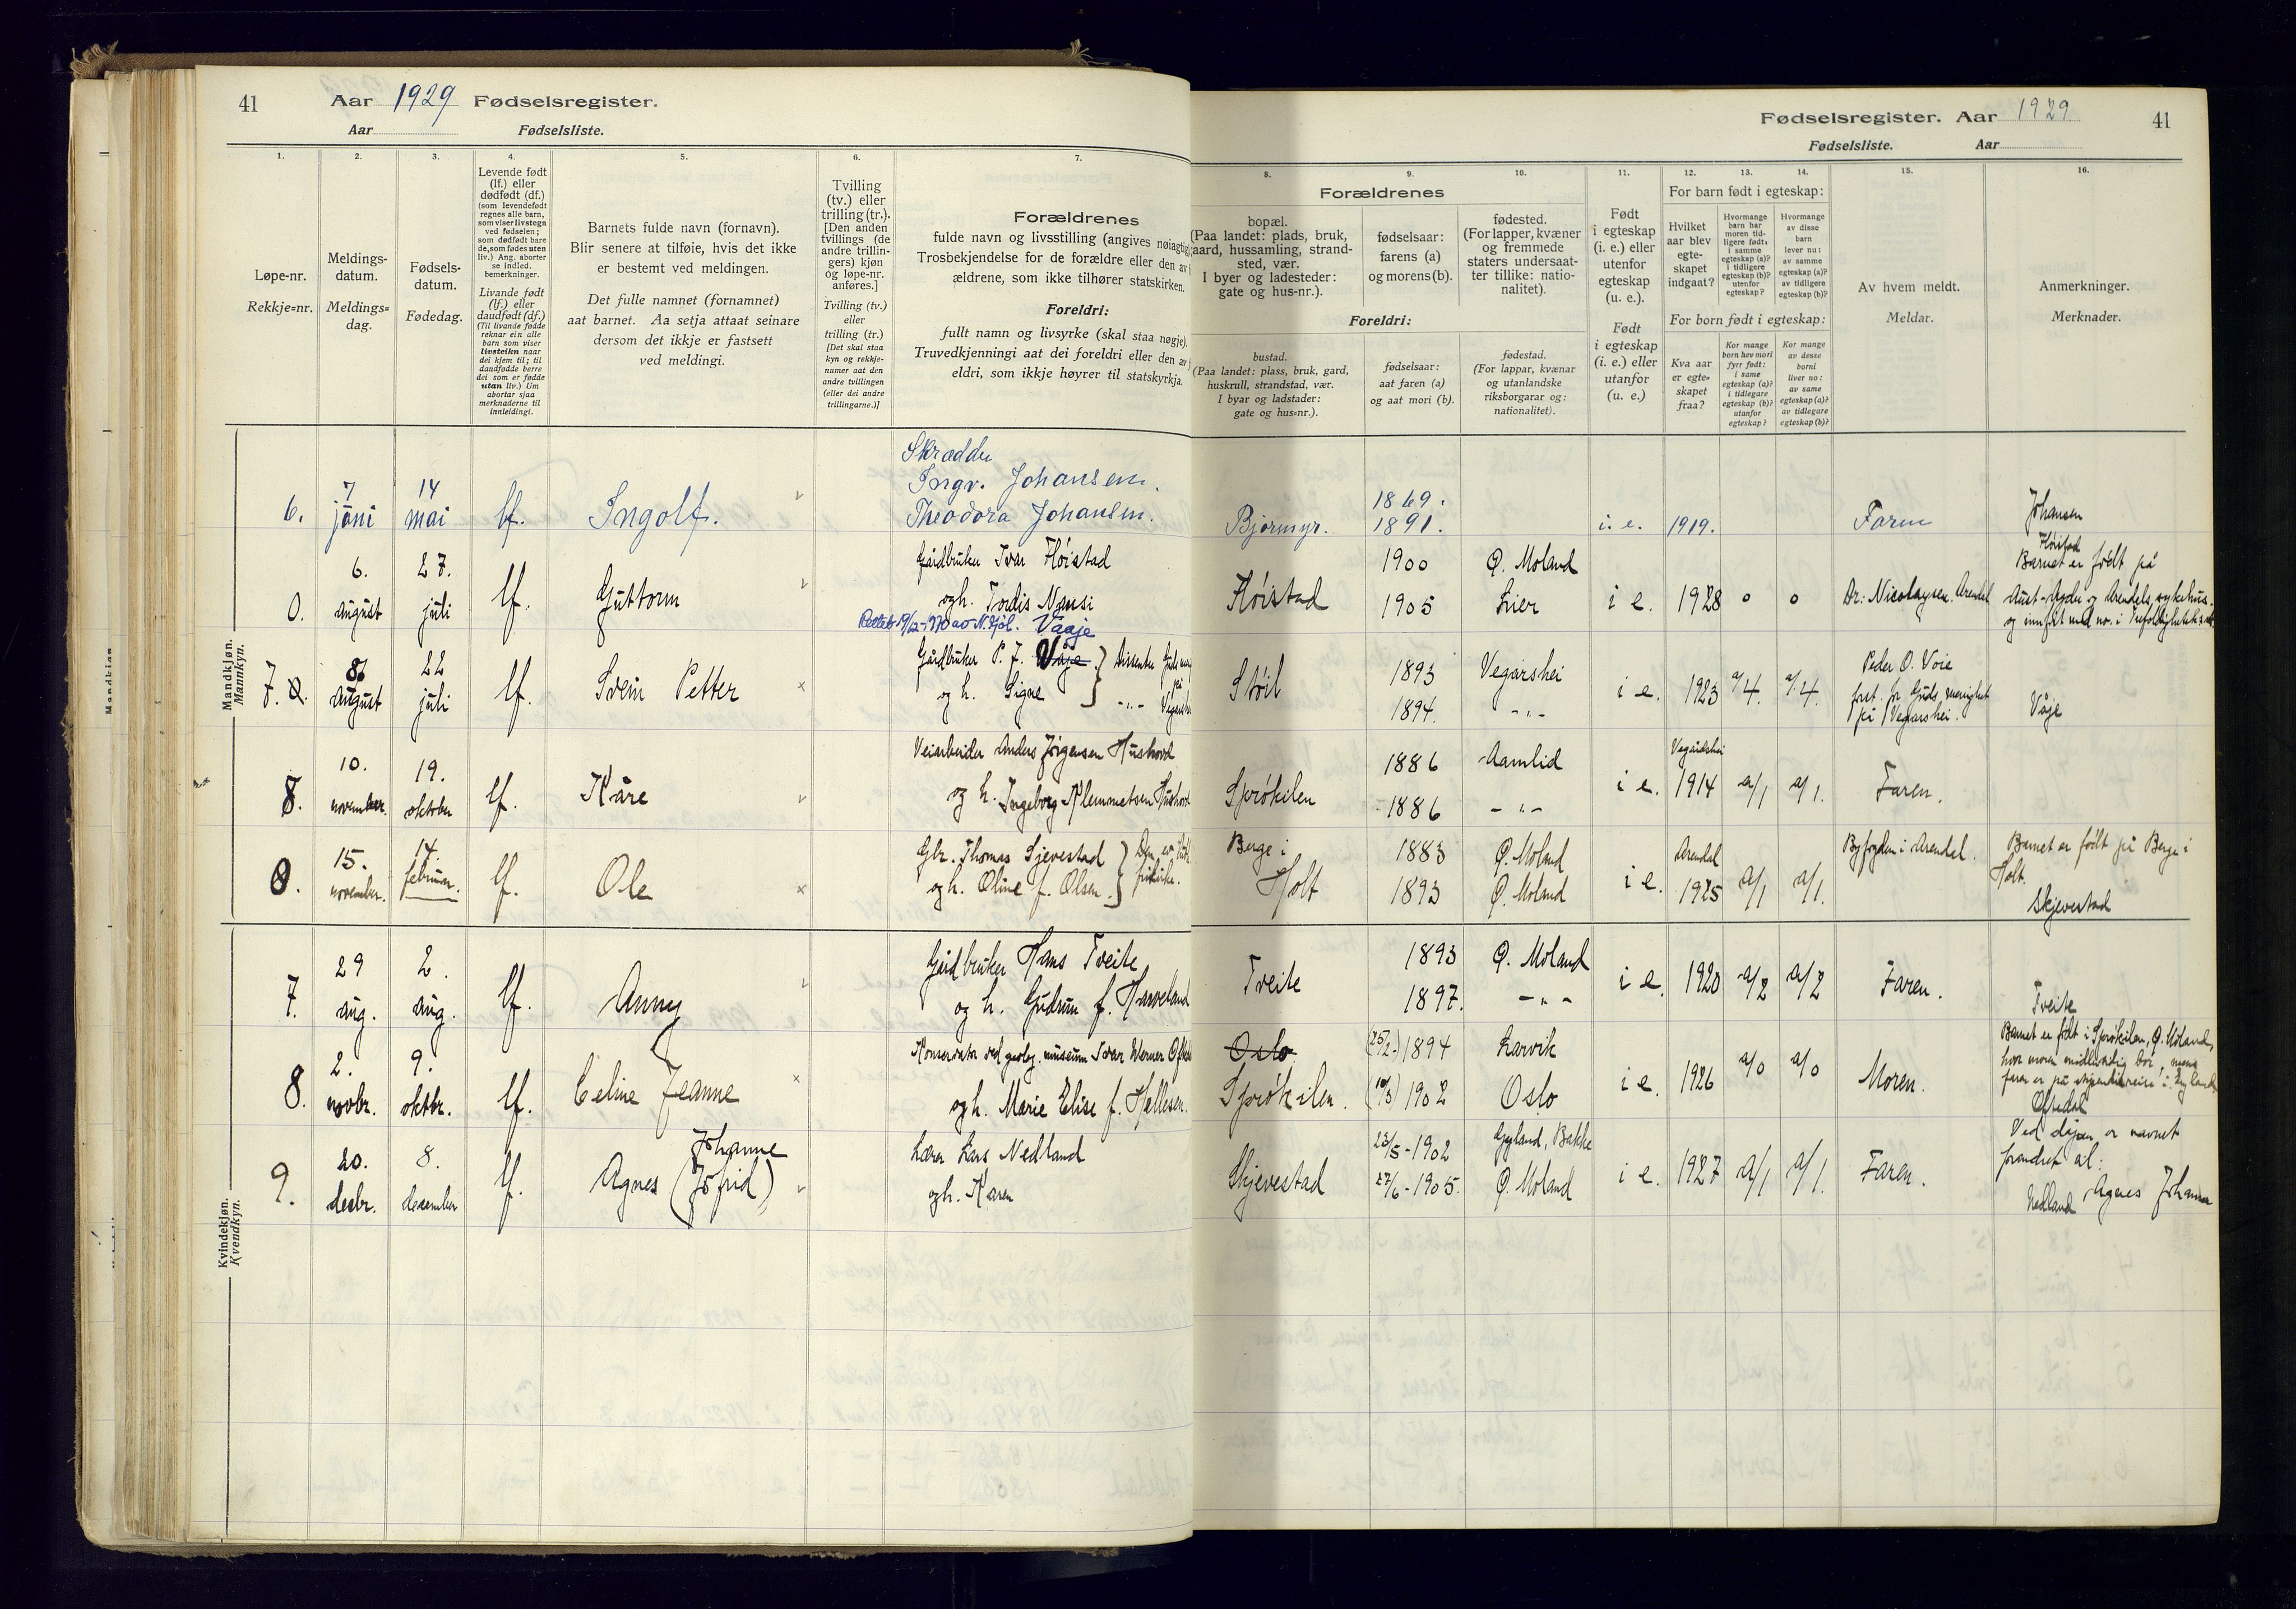 41
Aar 1929 Fødselsregister.
Aar Fødselsliste.
1.
2.
3.
4.
5.
6.
7.
Løpe-nr.
Rekkje=nr.
Meldings-
datum.
Meldings=
dag.
Fødsels-
datum.
Fødedag.
Levende født
(lf.) eller
dødfødt (df.)
(som levendefødt
regnes alle barn,
som viser livstegn
ved fødselen;
som dødfødt bare
de, som fødes uten
liv.) Ang. aborter
se indled.
bemerkninger.
Livande født
(lf.) eller
daudfødt (df.)
(Til livande fødde
reknar ein alle
barn som viser
livsteikn naar
dei kjem til; til
daudfødde berre
dei som er fødde
utan liv.) Um
abortar sjaa
merknaderne til
innleidingi.
Barnets fulde navn (fornavn).
Blir senere at tilføie, hvis det ikke
er bestemt ved meldingen.
Det fulle namnet (fornamnet)
aat barnet. Aa setja attaat seinare
dersom det ikkje er fastsett
ved meldingi.
Tvilling
(tv.) eller
trilling (tr.).
[Den anden
tvillings (de
andre trillin-
gers) kjøn
og løpe-nr.
anføres.]
Tvilling (tv.)
eller
trilling (tr.)
[Det skal staa
kyn og rekkje-
numer aat den
andre tvillingen
(eller dei andre
trillingarne.)]
Forældrenes
fulde navn og livsstilling (angives nøiagtig)
Trosbekjendelse for de forældre eller den av
ældrene, som ikke tilhører statskirken.
Foreldri:
fullt namn og livsyrke (skal staa nøgje).
Truvedkjenningi aat dei foreldri eller den av
eldri, som ikkje høyrer til statskyrkja.
Mandkjøn.
Mannkyn.
6.
7
juni
14
mai
lf.
Ingolf.
Skrædder
Ingv. Johansen.
Theodora Johansen.
0.
6.
august
27.
juli
lf.
Guttorm
Gårdbruker Ivar Høistad
og h. Tordis Nansi
Vaaje
7.
8.
august
22
juli
lf.
Svein Petter
Gårdbruker P. J. Våje
og h. Signe
8.
10.
november.
19.
oktober
lf.
Kåre
Veiarbeider Anders Jørgensen Hushovd
og h. Ingeborg Klemmetsen Hushovd
0.
15.
november.
14.
februar.
lf.
Ole
Gbr. Thomas Sjevestad
og h. Oline f. Olsen.
Kvindekjøn.
Kvendkyn.
7.
29
aug.
2.
aug.
lf.
Anny
Gårdbruker Hans Tveite
og h. Gudrun f. Haaveland
8.
2.
novbr.
9.
oktbr.
lf.
Celine Jeanne
Konservator ved geolog. museum Ivar Werner Oftedal
og h. Marie Elise f. Hellesen.
9.
20.
desbr.
8.
desember
lf.
Johanne
Agnes (Jofrid)
Lærer Lars Nedland
og h. Karen
Fødselsregister. Aar 1929
41
Fødselsliste. Aar
8.
9.
10.
11.
12.
13.
14.
15.
16.
Forældrenes
bopæl.
(Paa landet: plads, bruk,
gaard, hussamling, strand-
sted, vær.
I byer og ladesteder:
gate og hus-nr.).
fødselsaar:
farens (a)
og morens (b).
fødested.
(For lapper, kvæner
og fremmede
staters undersaat-
ter tillike: natio-
nalitet).
Foreldri:
bustad.
(Paa landet: plass, bruk, gard,
huskrull, strandstad, vær.
I byar og ladstader:
gate og hus=nr.).
fødselsaar:
aat faren (a)
og aat mori (b).
fødestad.
(For lappar, kvænar
og utanlandske
riksborgarar og:
nationalitet).
Født
i egteskap
(i. e.) eller
utenfor
egteskap
(u. e.).
Født
i egteskap
(i. e.) eller
utanfor
(u. e.)
For barn født i egteskap:
Hvilket
aar blev
egte-
skapet
indgaat?
Hvormange
barn har
moren tid-
ligere født:
i samme
egteskap (a)?
i tidligere
egteskap (b)?
utenfor
egteskap?
Hvormange
av disse
barn
lever nu:
av samme
egteskap (a)?
av tidligere
egteskap (b)?
For born født i egteskap:
Kva aar
er egte=
skapet
fraa?
Kor mange
born hev mori
fyrr født:
i same
egteskap (a)?
i tidlegare
egteskap (b)?
utanfor
egteskap?
Kor mange
av desse
borni
liver no:
av same
egteskap (a)?
av tidlegare
egteskap (b)?
Av hvem meldt.
Meldar.
Anmerkninger.
Merknader.
Bjormyr.
1869.
1891.
i. e.
1919.
Faren
Johansen
Høistad
1900
1905
Ø. Moland
Lier
i e.
1928
0
0
Dr. Nicolaysen. Arendal
Høistad
Barnet er født på
Aust-Agder og Arendals sykehus.
Støil
1893
1894.
Vegårshei
- " -
i e.
1923
a/4.
a/4.
Peder O. Voie
frst. for Guds menighet
på Vegårshei.
Våje
Sprøkilen
1886
1886
Aamlid
- " -
i e.
Vegårdshei
1914
a/1
a/1.
Faren.
Berge i
Holt
1883
1893
Ø. Moland
Ø. Moland
i e.
Arendal
1925
a/1
a/1.
Byfogden i Arendal.
Barnet er født på Berge i
Holt.
Skjevestad
Tveite
1893
1897.
Ø. Moland
- " -
i e.
1920
a/2
a/2
Faren.
Tveite
Oslo
Sprøkilen.
(25/2-) 1894
1902
Larvik
Oslo
i e.
1926
a/0
a/0
Moren.
Barnet er født i Sprøkilen, Ø. Moland,
hvor moren midlertidig bor, mens
faren er på stipendiereise i England
Oftedal
Skjevestad
23/5-1902
27/6-1905.
Gyland, Bakke
Ø. Moland
i e.
1927
a/1
a/1.
Faren.
Ved dåpen er navnet
forandret til:
Agnes Johanne
Nedland